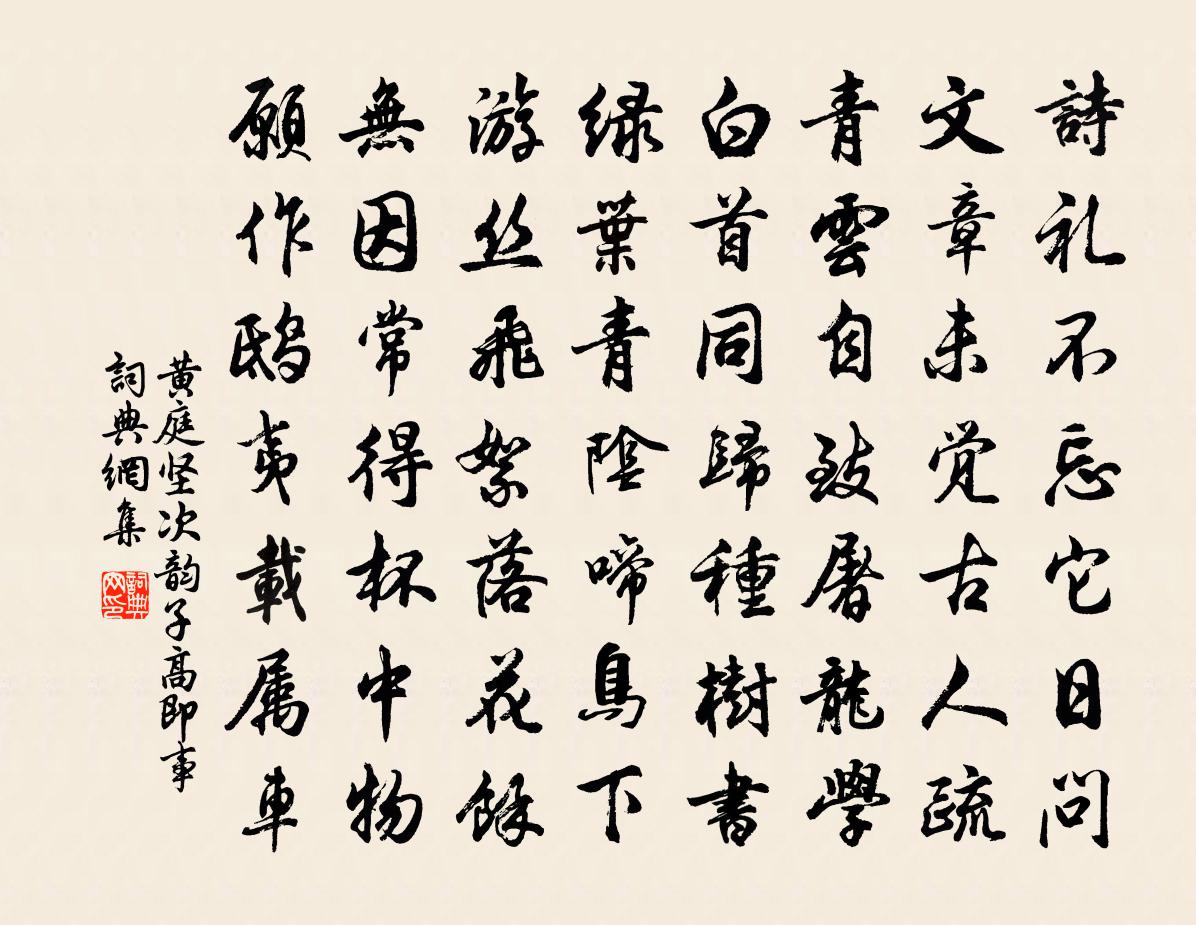 詩礼不忘它日問
文章未觉古人疏
青雲自致屠龍學
白首同歸種樹書
绿葉青陰啼鳥下
游丝飛絮落花餘
無因常得杯中物
願作鸱夷載属車
黄庭坚次韵子高即事
詞典網集
詞典网印